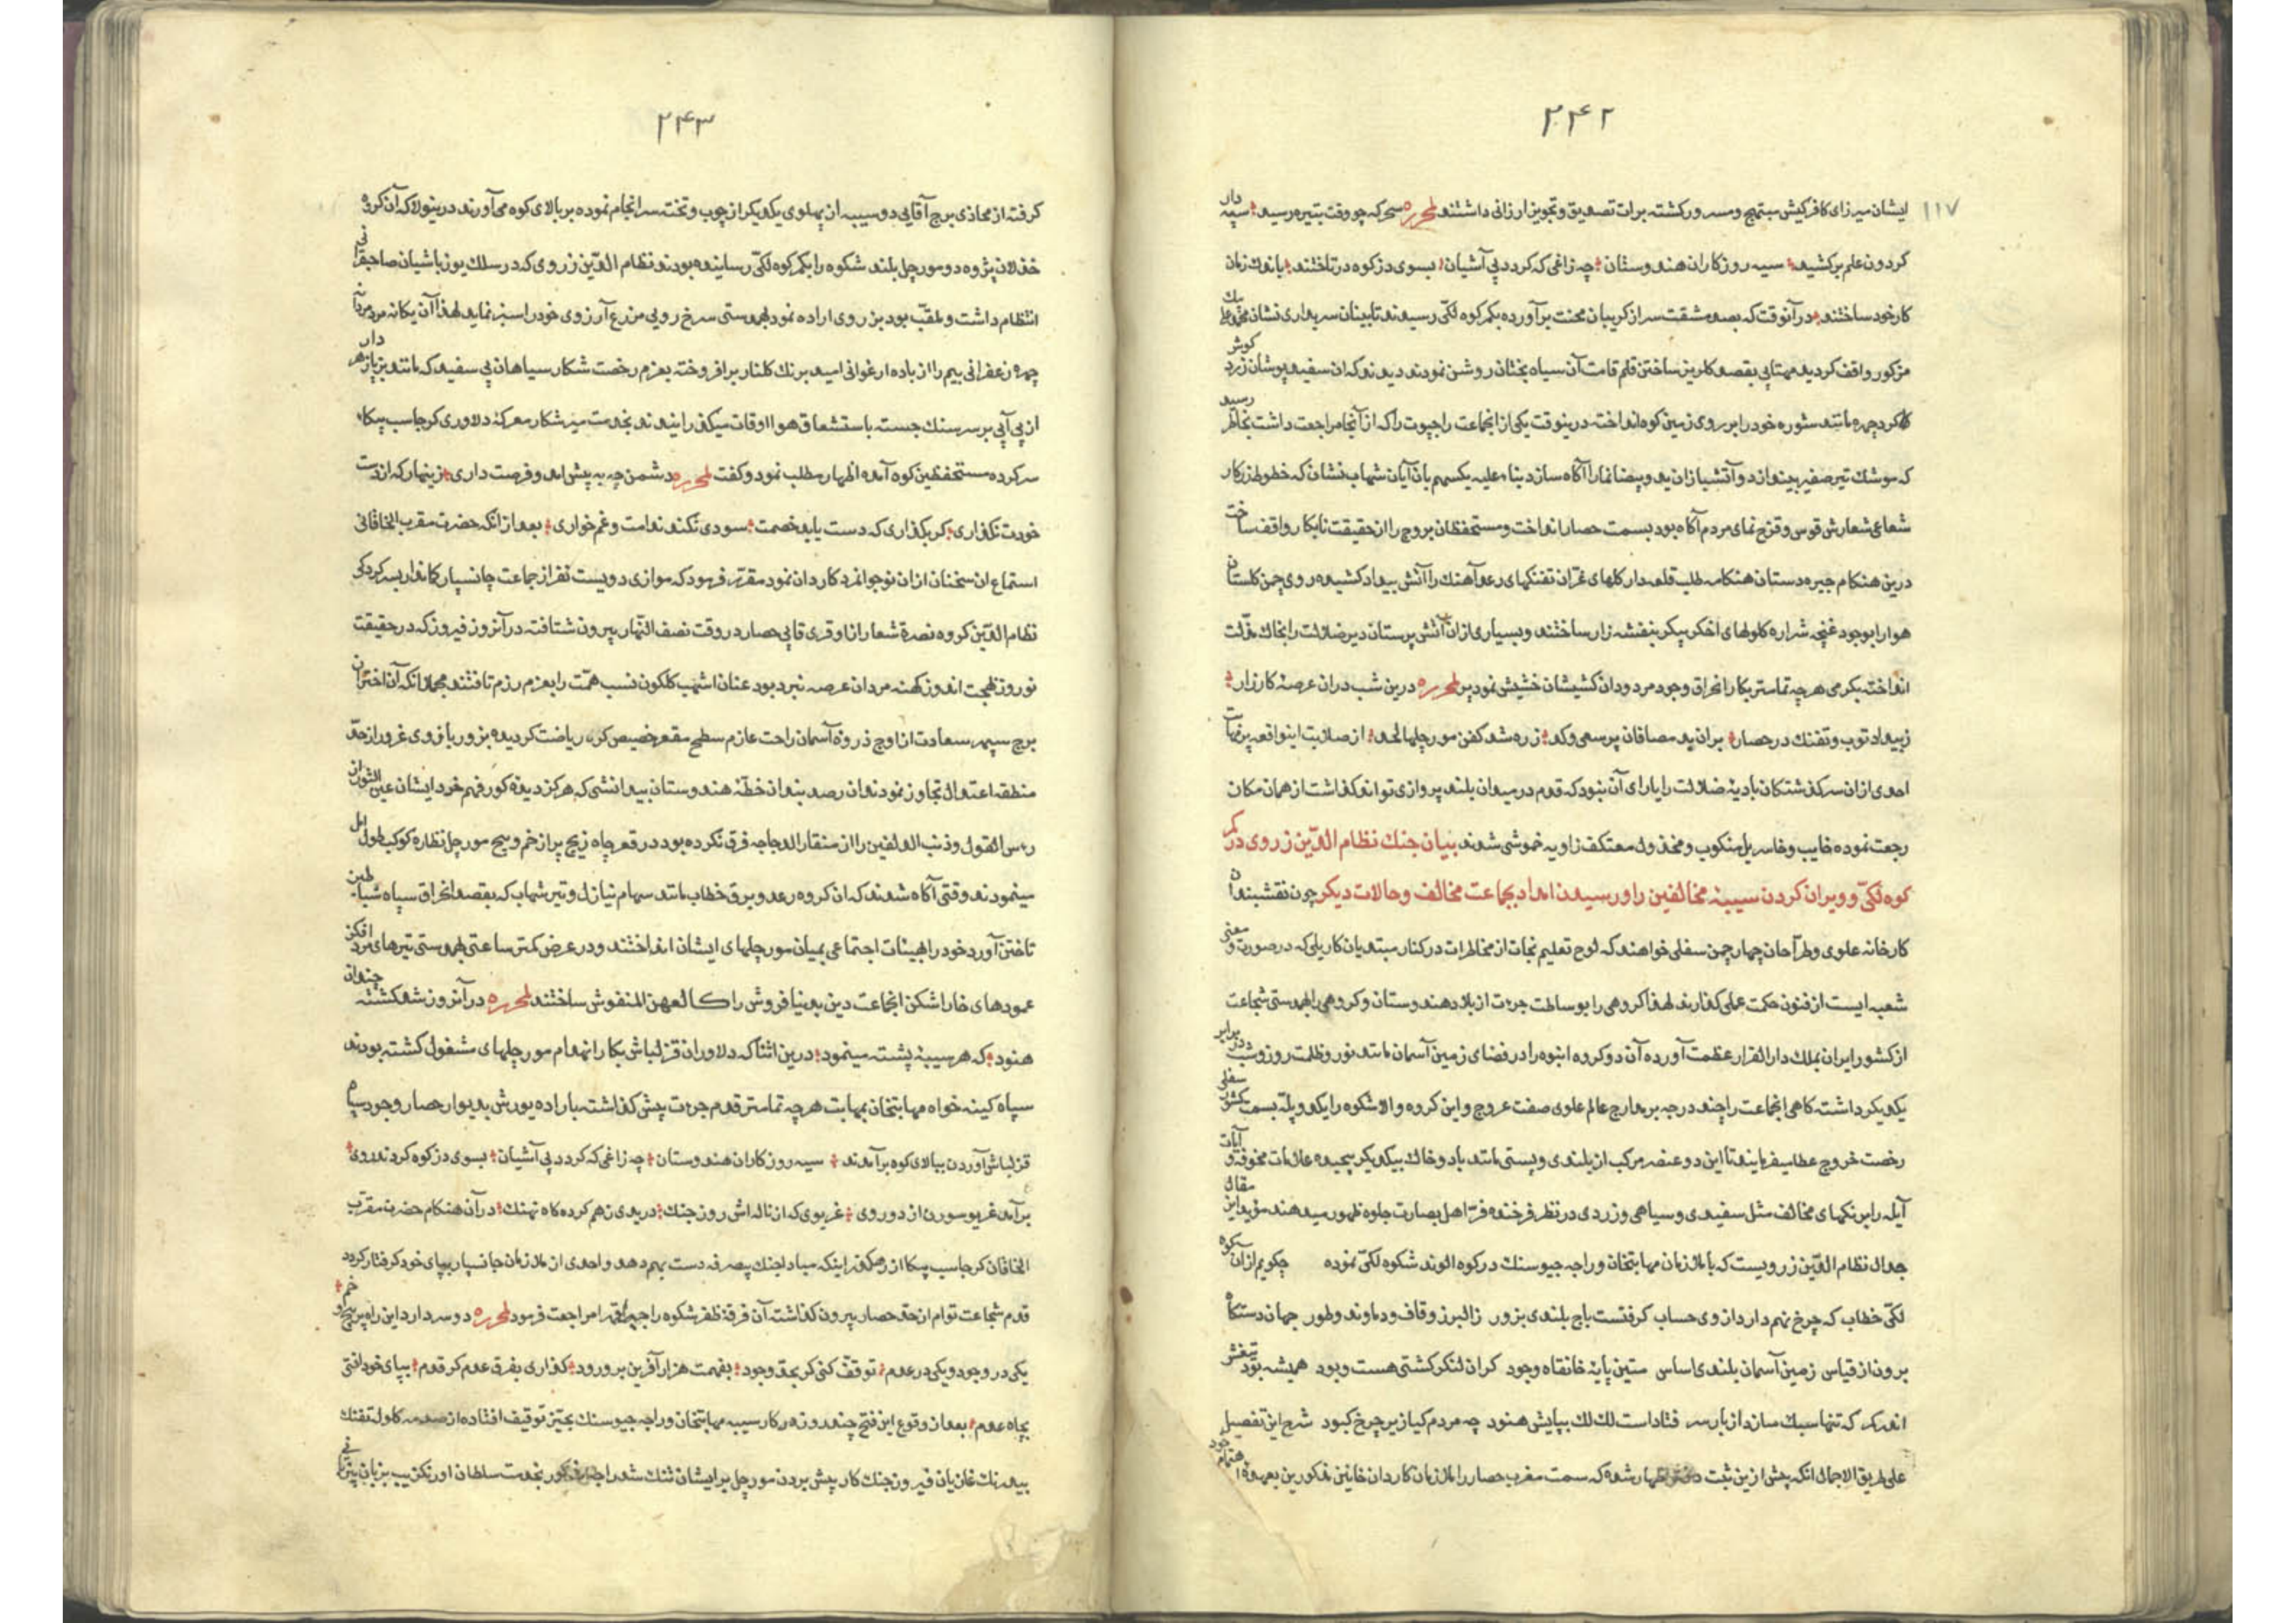 ۲۴۲
۱۱۷
ایشان میرزای کافرکیش مبتهج و مسرور کشته برات تصدیق و تجویز ارزانی داشتند لمحرره سحرکه چو وقت تیره رسید سپه دار
کردون علم برکشید سیه روزکاران هندوستان چه زاغی که کردد پی آشیان بسوی دز کوه در تاختند باندك زمان
کار خود ساختند در آنوقت که بصد مشقت سر از کریبان محنت برآورده بکمر کوه لکّی رسیدند تابینان سربداری نشان
مزکور واقف کردیده مهتابی بقصد کلریز ساختن قلم قامت آن سیاه بختان روشن نمودند دیدند که ان سفید پوشان زرد کوش
کرد چهره مانند شوره خود را بر روی زمین کوه انداخته درینوقت یکی از انجماعت راجپوت را که از آنجا مراجعت داشت بخاطر رسید
که موشك تیر صفیر بیندازد و آتشبازان ید و بیضا نما را آکاه سازد بناء علیه یکسهم بان آیان شهاب نشان که خطوط زرکار
شعاعی شعارش قوس و قزح نمای مردم آکاه بود بسمت حصار انداخت و مستحفظان بروج را از حقیقت نابکار واقف ساخت
درین هنکام چیره دستان هنکامه طلب قلعه دار کلهای غرّان تفنکهای رعد آهنك را آتش بیداد کشیده روی چمن کلستان
هوا را بوجود غنچه شراره کلولهای اخکر پیکر بنفشه زار ساختند و بسیاری از ان آتش پرستان دیر ضلالت را بخاك مذلّت
انداخته بکرمی هر چه تمامتر بکار احراق وجود مردودان کشیشان خشیش نمودیر لمحرره درین شب دران عرصهٔ کارزار
زبیداد توپ و تفنك در حصار بران ید مصافان پر سعی و کد زره شد کفن مورچلها لحد از صلابت اینواقعه پر نهابت
احدی ازان سرکذشتکان بادیهٔ ضلالت را یارای آن نبود که قدم در میدان بلند پروازی تواند کذاشت از همان مکان
رجعت نموده خایب و خاسر بل منکوب و مخذول معتکف زاویه خموشی شدند بیان جنك نظام الدّین زروی در کمر
کوه لکّی و ویران کردن سیبهٔ مخالفین را و رسیدن امداد بجماعت مخالف و حالات دیکر چون نقشبندان
کارخانه علوی و طرّاحان چهار چمن سفلی خواهند که لوح تعلیم نجات از مخاطرات در کنار مبتدیان کار بلی که در صورت و معنی
شعبه ایست از فنون حکمت عملی کذارند لهذا کروهی را بوساطت جرءت از بلاد هندوستان و کروهی را بهمدستی شجاعت
از کشور ایران بملك دار القرار عظمت آورده آن دو کروه انبوه را در فضای زمین آسمان مانند نور و ظلمت روز و شب در برابر
یکدیکر داشته کاهی انجماعت را چند درجه بر معارج عالم علوی صفت عروج و این کروه والا شکوه را یکدو پلّه بسمت کشور سفلی
رخصت خروج عطا میفرمایند تا این دو عنصر مرکب از بلندی و پستی مانند باد و خاك بیکدیکر پیچیده علامات مخوفه و آیات
آیله را برنکهای مخالف مثل سفیدی و سیاهی و زردی در نظر فرخنده فرّ اهل بصارت جلوه ظهور میدهند مؤید این مقال
جدال نظام الدّین زرویست که با ملازمان مهابتخان و راجه جیوسنك در کوه الوند شکوه لکّی نموده چکویم ازان کوه
لکّی خطاب که چرخ نهم دارد ازوی حساب کرفتست باج بلندی بزور زالبرز و قاف و دماوند و طور جهان دستکاه
برون از قیاس زمین آسمان بلندی اساس متین پایهٔ خانقاه وجود کران لنکر کشتی هست و بود همیشه بود تیغش
اندر کمر که تنها سبك سازد از بار سر فتاداست لك لك بپایش هنود چه مردم کیا زیر چرخ کبود شرح این تفصیل
علی طریق الاجمال انکه پیش ازین ثبت دفتر اظهار شده که سمت مغرب حصار را ملازمان کاردان خانین مذکورین بعهده اهتمام خود
۲۴۳
کرفته از محاذی برج آقایی دو سیبه از پهلوی یکدیکر از چوب و تخته سرانجام نموده بر بالای کوه می آورند درینولا که آن کروه
خذلان پژوه دو مورچل بلند شکوه را بکمر کوه لکّی رسانیده بودند نظام الدّین زروی که در سلك یوزباشیان صاحبقرانی
انتظام داشت و ملقّب بود بزروی اراده نمود بهمدستی سرخ رویی مزرع آرزوی خود را سبز نماید لهذا آن یکانه مرد مردانه
چهره زعفرانی بیم را از باده ارغوانی امید برنك کلنار برافروخته بعزم رخصت شکار سیاهان پی سفید که مانند
از بی آبی بر سر سنك جسته باستشعاق هوا اوقات میکذرانیدند بخدمت میر شکار معرکهٔ دلاوری کرجاسب بیکا
سرکرده مستحفظین کوه آمده اظهار مطلب نمود و کفت لمحرره دشمن چه به پیش امد و فرصت داری زینهار که از دست
خودت نکذاری کر بکذاری که دست یابد خصمت سودی نکند ندامت و غم خواری بعد از انکه حضرت مقرب الخاقانی
استماع ان سخنان ازان نوجوانمرد کاردان نمود مقرّر فرمود که موازی دویست نفر از جماعت جانسپار کماندار بسرکردکی
نظام الدّین کروه نصرة شعار را ناوقری قاپی حصار در وقت نصف النّهار بیرون شتافته در آنروز فیروز که در حقیقت
نوروز بهجت اندوز کهنه مردان عرصه نبرد بود عنان اشهب کلکون نسب همّت را بعزم رزم تافتند مجملا انکه آن اختران
برج سپهر سعادت از اوج ذروهٔ آسمان راحت عازم سطح مقعر حضیض کرهٔ ریاضت کردیده بزور بازوی غرور از حدّ
منطقه اعتدال تجاوز نمودند ان رصد بندان خطّهٔ هندوستان بیدانشی که هرکز دیدهٔ کور فهم خرد ایشان عین الثور از
رءس الغول و ذنب الدلفین را از منقار الدجاجه فرق نکرده بود در قعر چاه زیج پر از خم و پیچ مورچل نظاره کوکب طول امل
مینمودند وقتی آکاه شدند که ان کروه رعد و برق خطاب مانند سهام نیازل و تیر شهاب که بقصد احراق سپاه شیاطین
تاختن آورد خود را بهیئات اجتماعی بمیان مورچلهای ایشان انداختند و در عرض کمتر ساعتی بهمدستی تبرهای مرد افکن
عمودهای خارا شکن انجماعت دین بدنیا فروش را کالعهن المنفوش ساختند لمحرره در آنروز شد کشته چندان
هنود که هر سیبهٔ پشته مینمود درین اثنا که دلاوران قزلباش بکار انهدام مورچلهای مشغول کشته بودند
سپاه کینه خواه مهابتخان بمهابت هر چه تمامتر قدم جرءت پیش کذاشته باراده یورش بدیوار حصار وجود سپاه
قزلباش آوردن ببالای کوه برآمدند سیه روزکاران هندوستان چه زاغی که کردد پی آشیان بسوی دز کوه کردند روی
برآمد غریو سورن از دو روی غریوی که از ناله اش روز جنك دریدی زهم کرده کاه نهنك در آن هنکام حضرت مقرّب
الخاقان کرجاسب بیکا از رهکذر اینکه مبادا جنك بصرفه دست بهم دهد و احدی از ملازمان جانسپار بپای خود کرفتار کردد
قدم شجاعت توام از حدّ حصار بیرون کذاشته آن فرقهٔ ظفر شکوه را جبرا قهرا مراجعت فرمود لمحرره دو سر دارد این راه پر پیچ و خم
یکی در وجود و یکی در عدم توقفّ کنی کر بحدّ وجود بفهمت هزار آفرین بر ورود کذاری بفرق عدم کر قدم بپای خود افتی
بچاه عدم بعد از وقوع این فتح چند روزه در کار سیبه مهابتخان و راجه جیوسنك بحیّز توقیف افتاده از صدمه کلوله تفنك
بیدرنك غازیان فیروز جنك کار پیش بردن مورچل بر ایشان تنك شد راجه مذکور بخدمت سلطان اورنکزیب بزبان